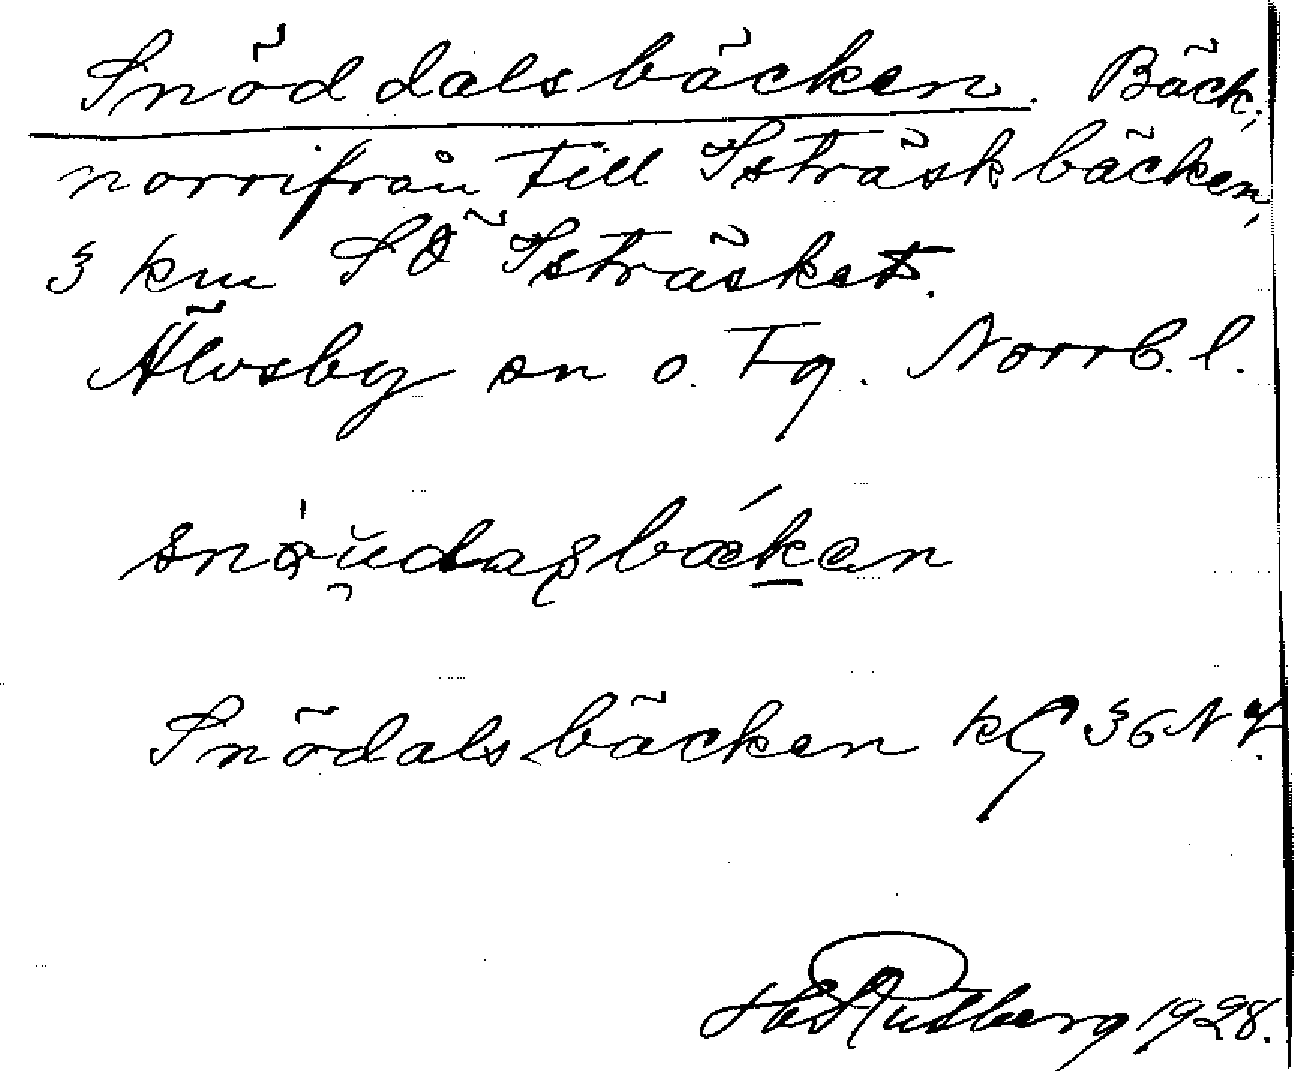 Snöddalsbäcken. Bäck,
norrifrån till Isträskbäcken,
3 km SÖ Isträsket.
Älvsby sn o. tg. Norrb. l.
Snödalsbäcken kg 36 NV.
Rutberg 1928.